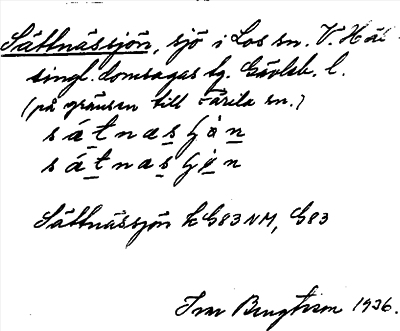 Sättnässjön, sjö i Los sn. V. Häl-
singl. domsagas tg. Gävleb. l.
(på gränsen till Färila sn.)
sátnasjön
sátnasjön
Sättnässjön k G83NM, G83
Ivar Bengtsson 1936.